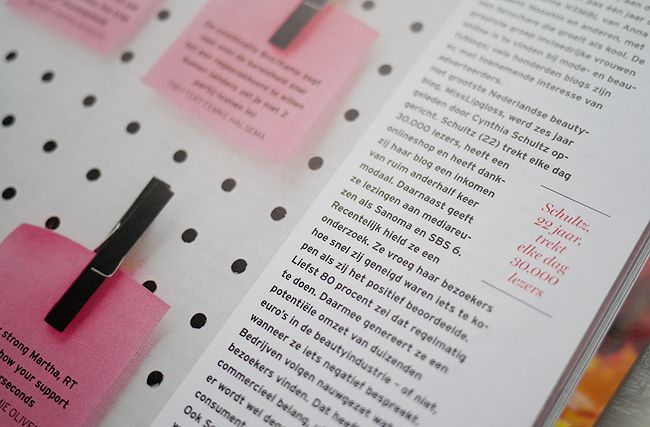 De combinatie Bos/Kamp zegt
veel over de
tot een regeerakkoord te willen
komen
partij
TWITTER FEMKE HALSEMA
strong Martha, RT
how your support
seconds
MIE OLIVER
pas één jaar
van Anna
Nooshis en anderen, met
die groeit als kool. De
grootste groep invloedrijke vrouwen
online is te vinden bij mode- en beau-
tyblogs: vele honderden blogs zijn
er, met toenemende interesse van
adverteerders.
Het grootste Nederlandse beauty-
blog, MissLipgloss, werd zes jaar
geleden door Cynthia Schultz op-
gericht. Schultz (22) trekt elke dag
30.000 lezers, heeft een
onlineshop en heeft dank-
zij haar blog een inkomen
van ruim anderhalf keer
modaal. Daarnaast geeft
ze lezingen aan mediareu-
zen als Sanoma en SBS 6.
Recentelijk hield ze een
onderzoek. Ze vroeg haar bezoekers
hoe snel zij geneigd waren iets te ko-
pen als zij het positief beoordeelde.
Liefst 80 procent zei dat regelmatig
te doen. Daarmee genereert ze een
potentiële omzet van duizenden
euro's in de beautyindustrie – of niet,
wanneer ze iets negatief bespreekt.
Bedrijven volgen nauwgezet wat
bezoekers vinden. Dat heeft
commercieel belang,
er wordt wel deg
consument
Ook Sc
Schultz,
22 jaar,
trekt
elke dag
30.000
lezers